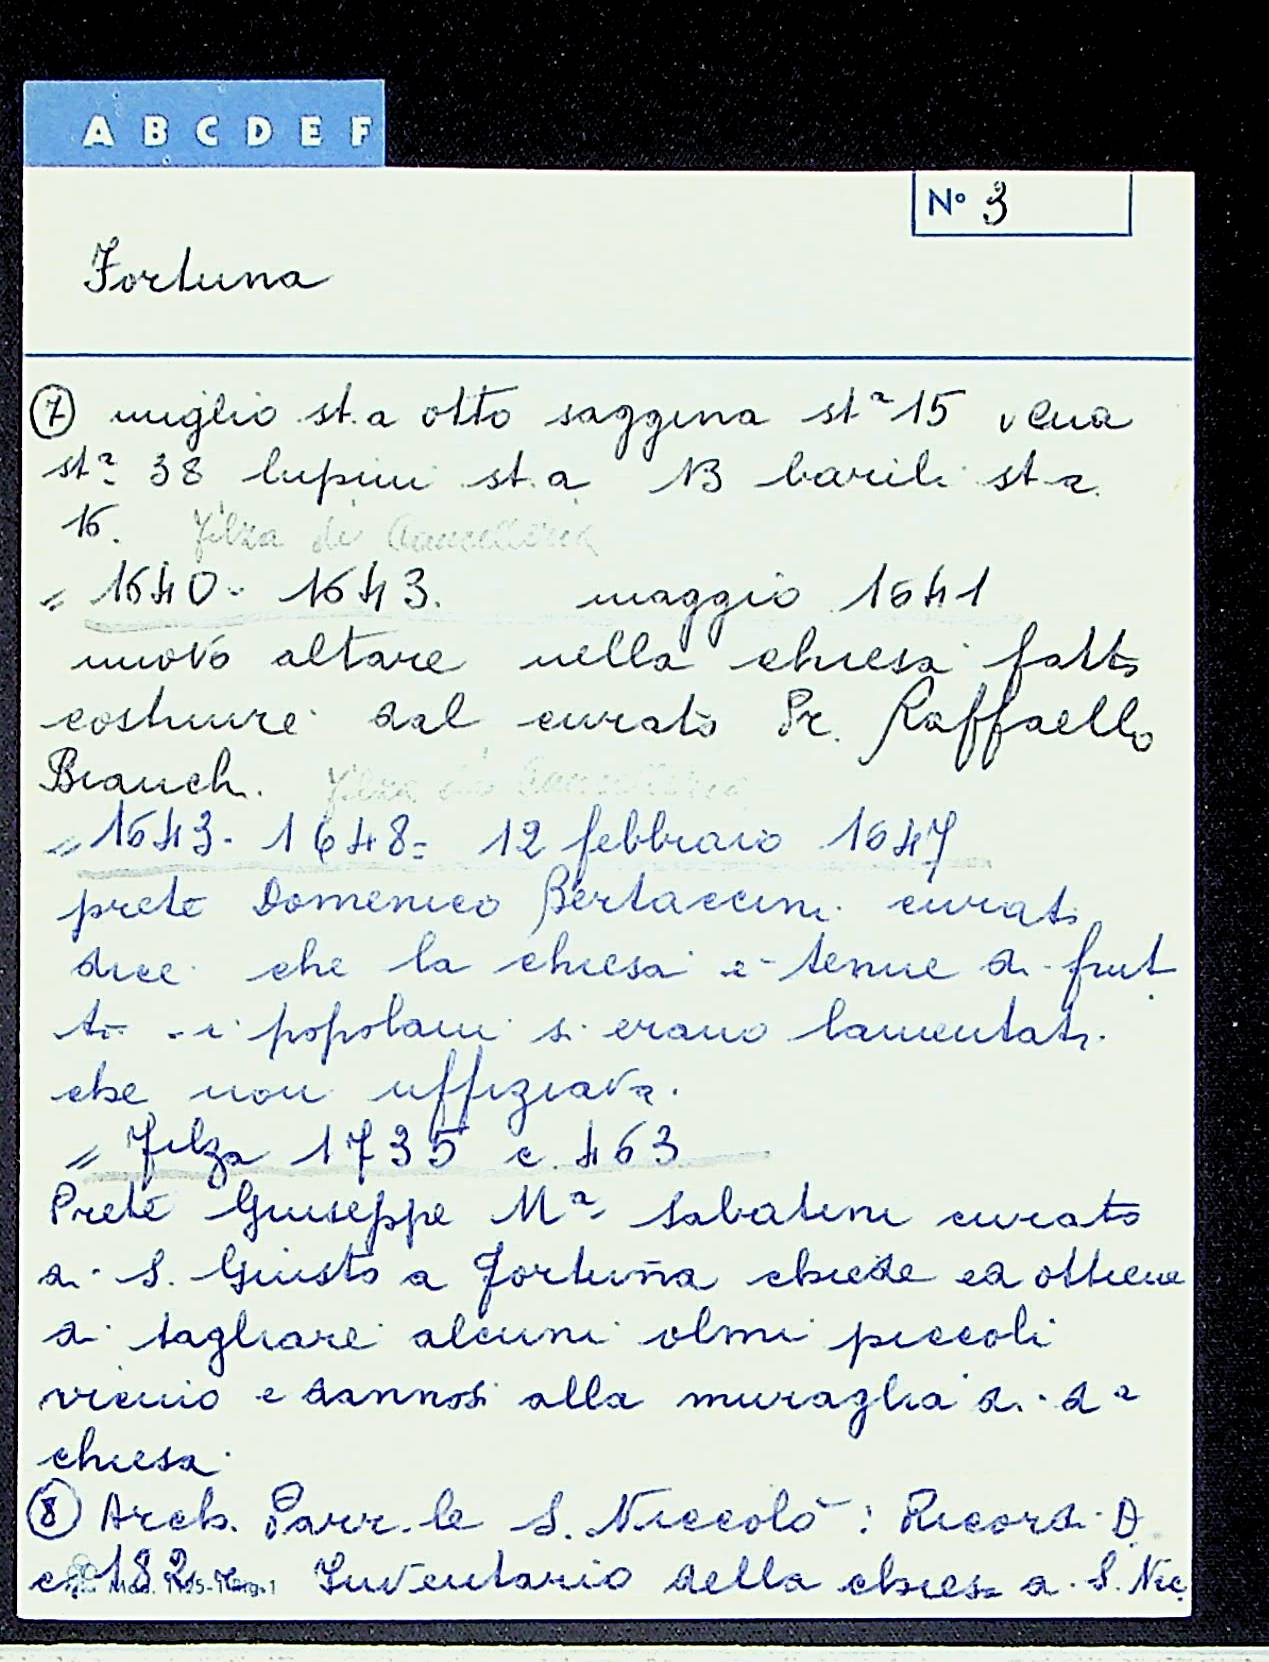 A B C D E F
N° 3
Fortuna
(7) miglio st.a otto saggina stª 15 vena
stª 38 lupini st.a 13 barili st.a
16. Filza di Cancelleria
= 1640 - 1643. maggio 1641
nuovo altare nella chiesa fatto
costruire dal curato Pr. Raffaello
Bianchi. Filza di Cancelleria
= 1643 - 1648 = 12 febbraio 1647
prete Domenico Bertaccini curato
dice che la chiesa è tenue di frut
to - i popolani si erano lamentati
che non uffiziava.
= Filza 1735 c 463
Prete Giuseppe Mª Sabatini curato
di S. Giusto a Fortuna chiede ed ottiene
di tagliare alcuni olmi piccoli
vicino e dannosi alla muraglia di dª
chiesa.
(8) Arch. Parr.le S. Niccolò: Ricordi D
c 182 Inventario della chiesa di S. Nic